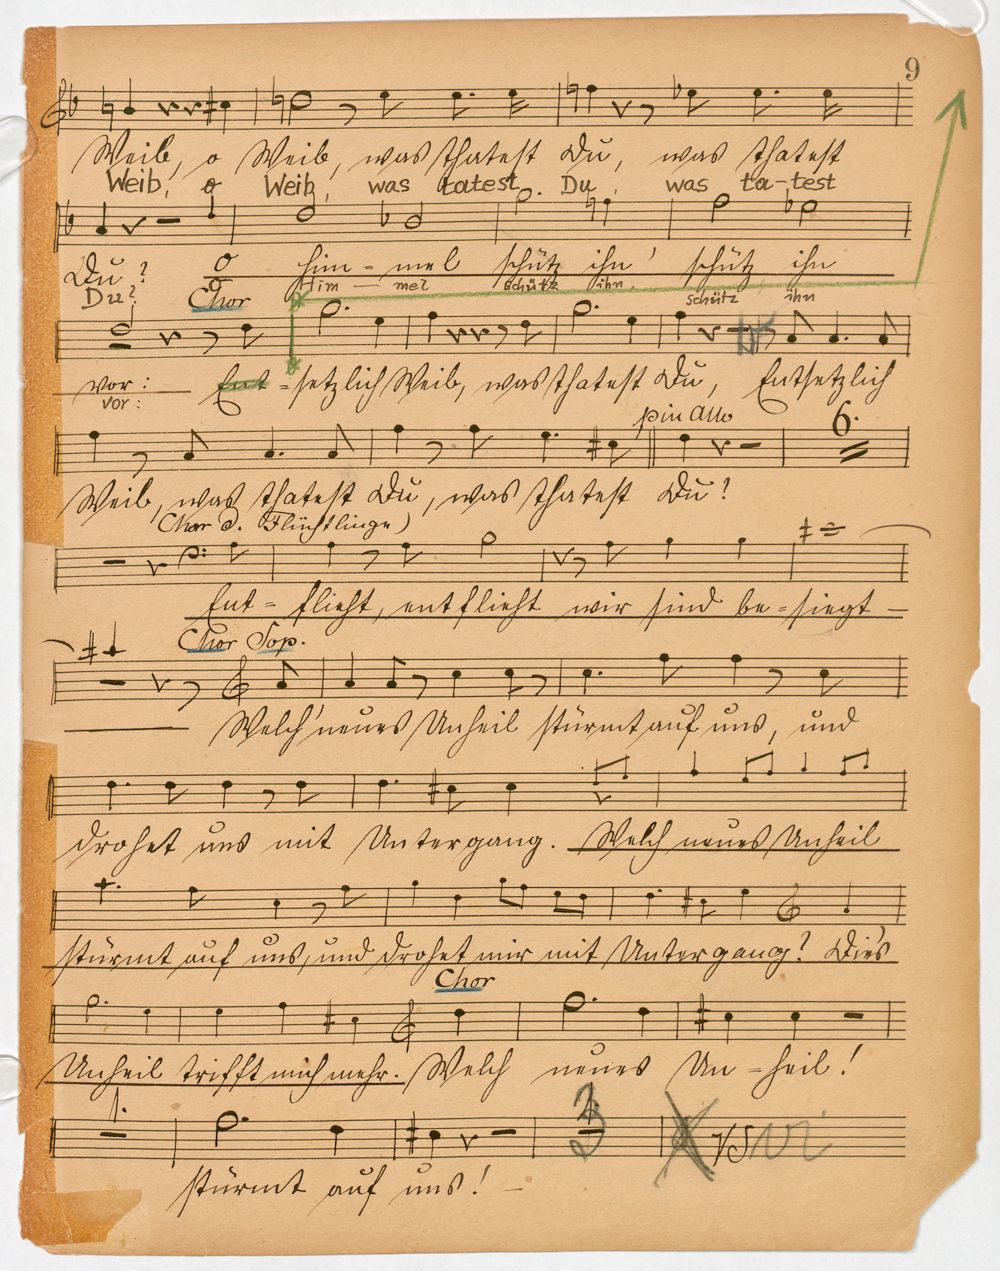 9
Weib, o Weib, was thatest Du, was thatest
Weib, o Weib, was tatest Du, was ta-test
Du? O Him-mel schütz ihn' schütz ihn
Du? Him-mel schütz ihn, schütz ihn
Chor
vor: Ent-setzlich Weib, was thatest Du, Entsetzlich
vor:
più Allo
6.
Weib, was thatest Du, was thatest Du?
Chor d. Flüchtlinge)
Ent-flieht, entflieht wir sind be-siegt –
Chor Sop.
Welch' neues Unheil stürmt auf uns, und
drohet uns mit Untergang. Welch neues Unheil
stürmt auf uns, und drohet mir mit Untergang? Dies
Chor
Unheil trifft mich mehr. Welch neues Un-heil!
1.
3
VS vi
stürmt auf uns! –